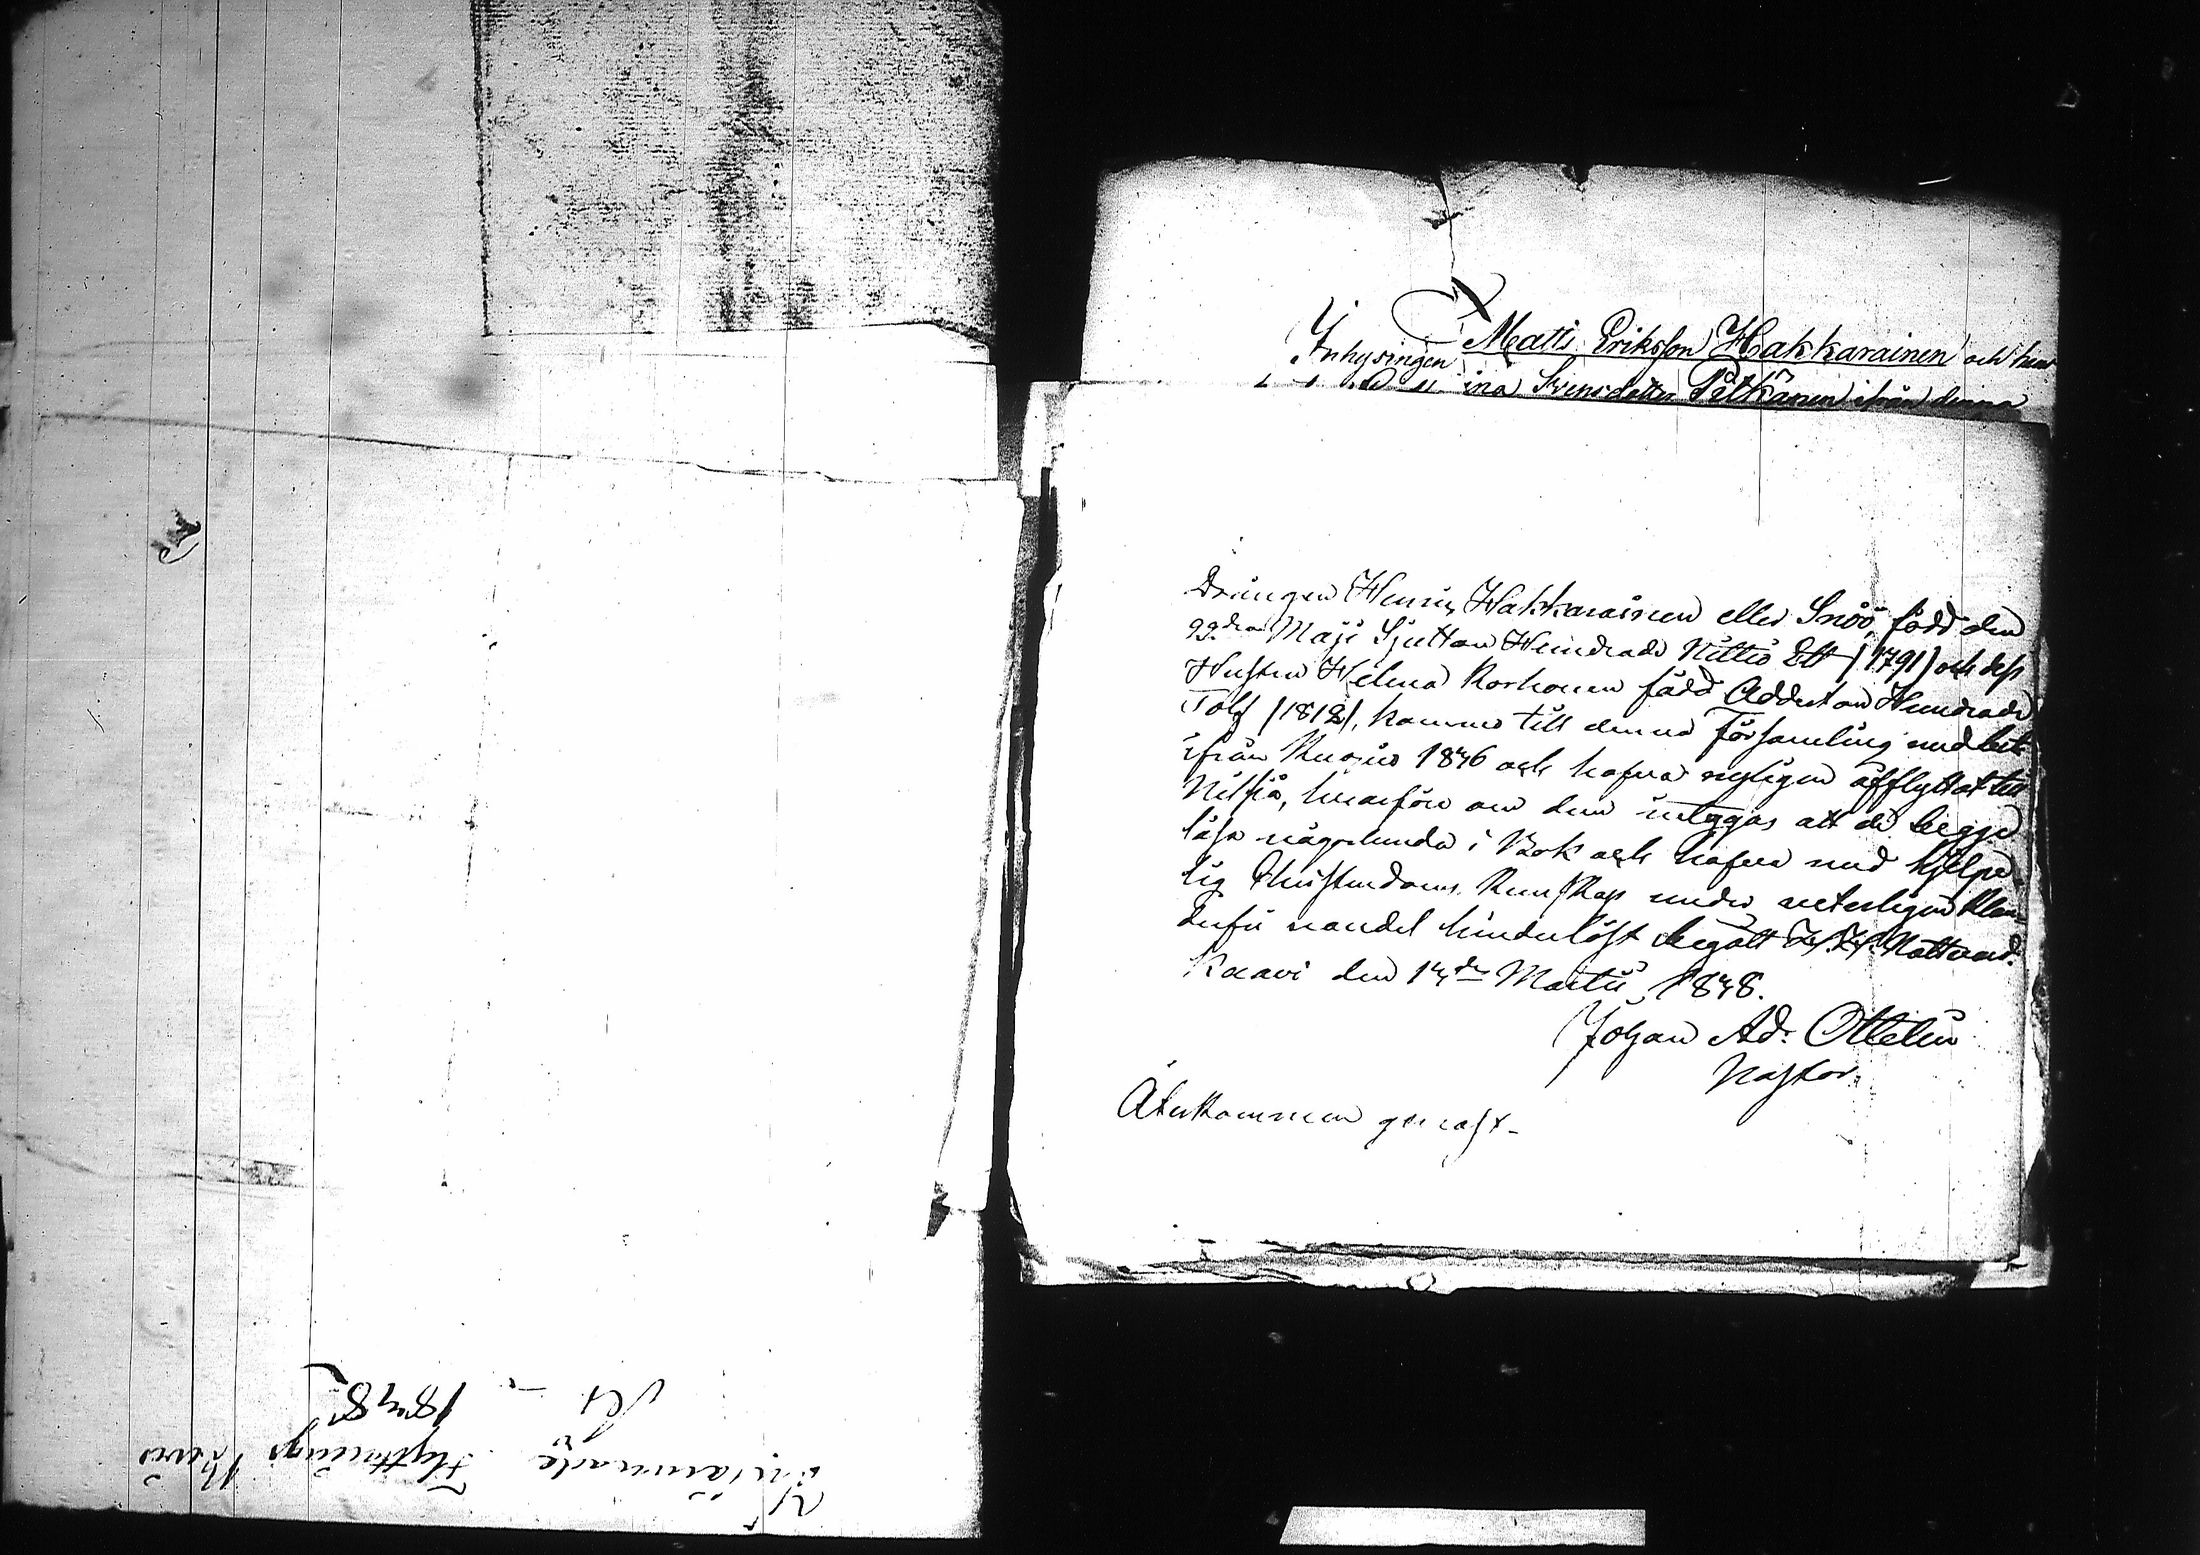 Inlämnade Flyttnings Bevis
1848
Inhysingen Matts Eriksson Hakkarainen och hans
ina Svensdotter Pitkänen ifrån denna
Drängen Henric Hakkarainen eller Snöö, född den
22dra Maji Sjutton Hundrade Nittio Ett (1791) och dess
Hustru Helena Korhonen född Aderton Hundrade
Tolf (1812), kommo till denna Församling med bet.
ifrån Kuopio 1846 och hafva nyligen afflyttat till
Nilsiä, hvarföre om dem intygas att de begge
läsa någorlunda i Bok och hafva med hjelpe-
lig Christendoms Kunskap under veterligen klan-
derfri vandel hinderlöst begått H. H. Nattvard.
Kaavi den 14de Martii 1848.
Johan Ad. Ottelin
Pastor.
Återkommen genast.